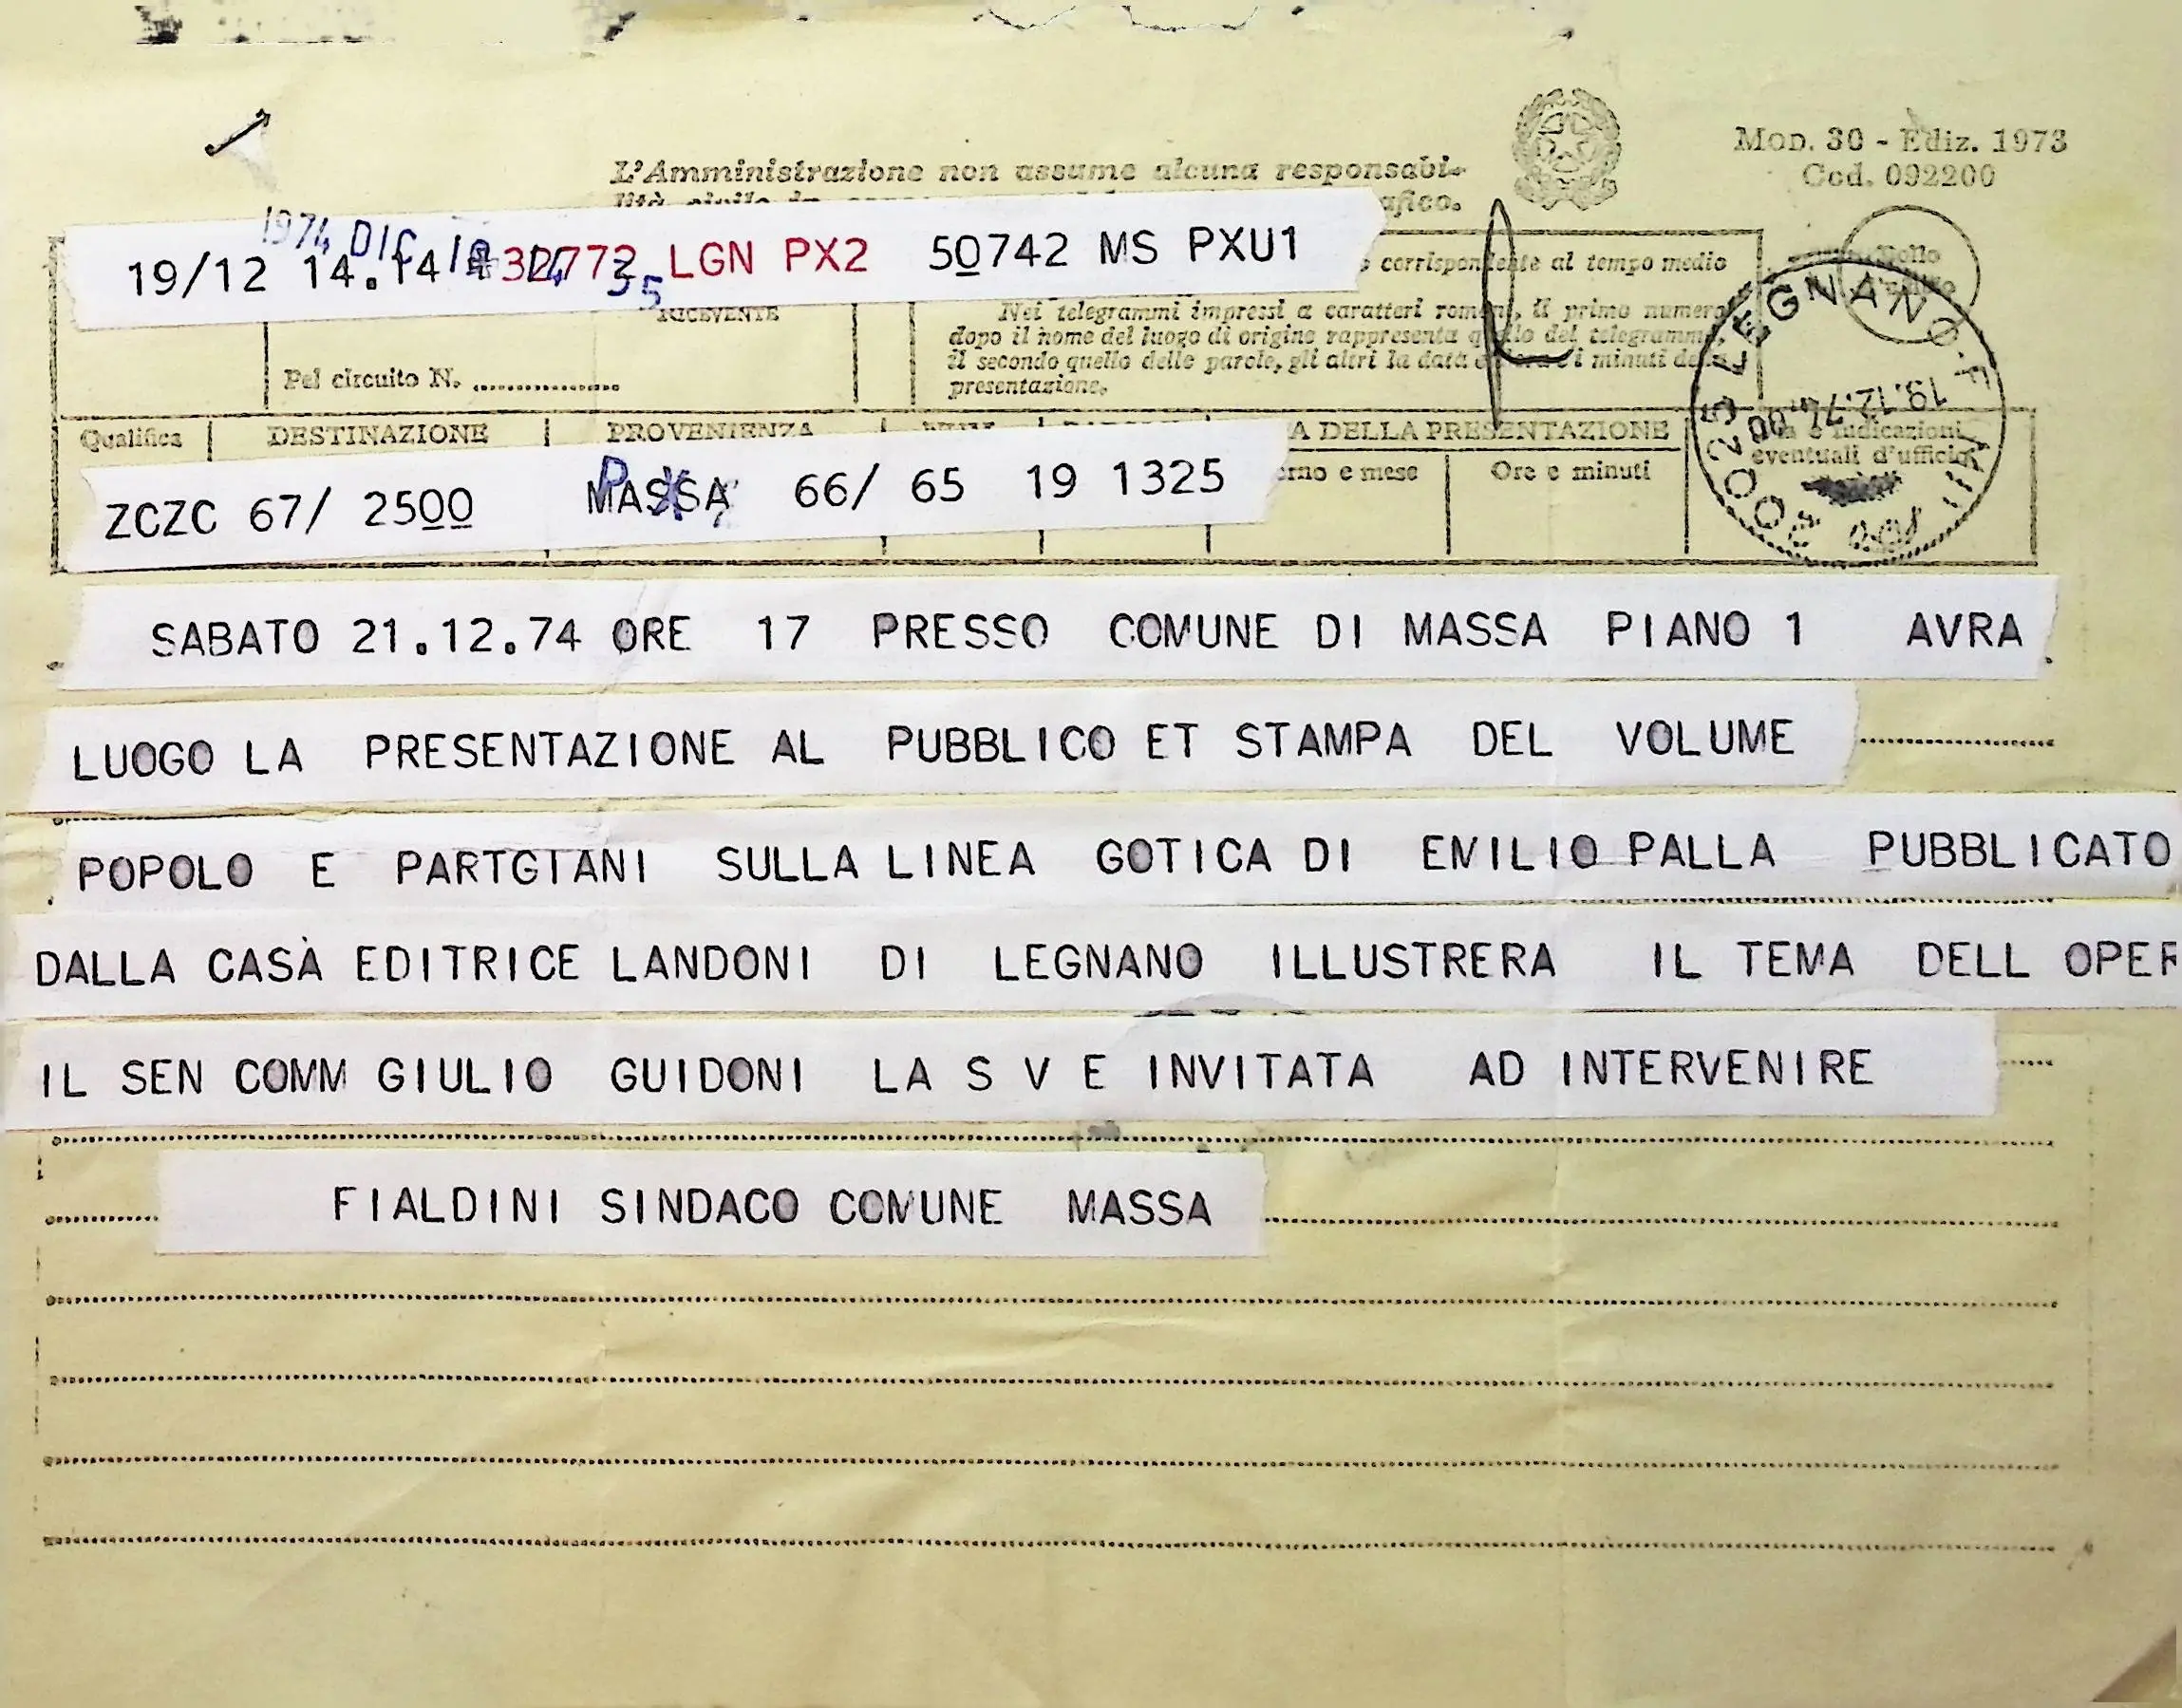 Mod. 30 - Ediz. 1973
Cod. 092200
L'Amministrazione non assume alcuna responsabi-
lità civile in
afico.
1974 DIC 19 14 35
19/12 14.14 32772 LGN PX2 50742 MS PXU1
corrispondente al tempo medio
RICEVENTE
Nei telegrammi impressi a caratteri romani, il primo numero
dopo il nome del luogo di origine rappresenta quello del telegramma,
il secondo quello delle parole, gli altri la data e l'ora e i minuti della
presentazione.
Pel circuito N.
LEGNANO
20025
19.12.74
Qualifica DESTINAZIONE PROVENIENZA A DELLA PRESENTAZIONE
e indicazioni
eventuali d'ufficio
rno e mese Ore e minuti
ZCZC 67/ 2500 MASSA 66/ 65 19 1325
SABATO 21.12.74 ORE 17 PRESSO COMUNE DI MASSA PIANO 1 AVRA
LUOGO LA PRESENTAZIONE AL PUBBLICO ET STAMPA DEL VOLUME
POPOLO E PARTGIANI SULLA LINEA GOTICA DI EMILIO PALLA PUBBLICATO
DALLA CASA EDITRICE LANDONI DI LEGNANO ILLUSTRERA IL TEMA DELL OPER
IL SEN COMM GIULIO GUIDONI LA S V E INVITATA AD INTERVENIRE
FIALDINI SINDACO COMUNE MASSA